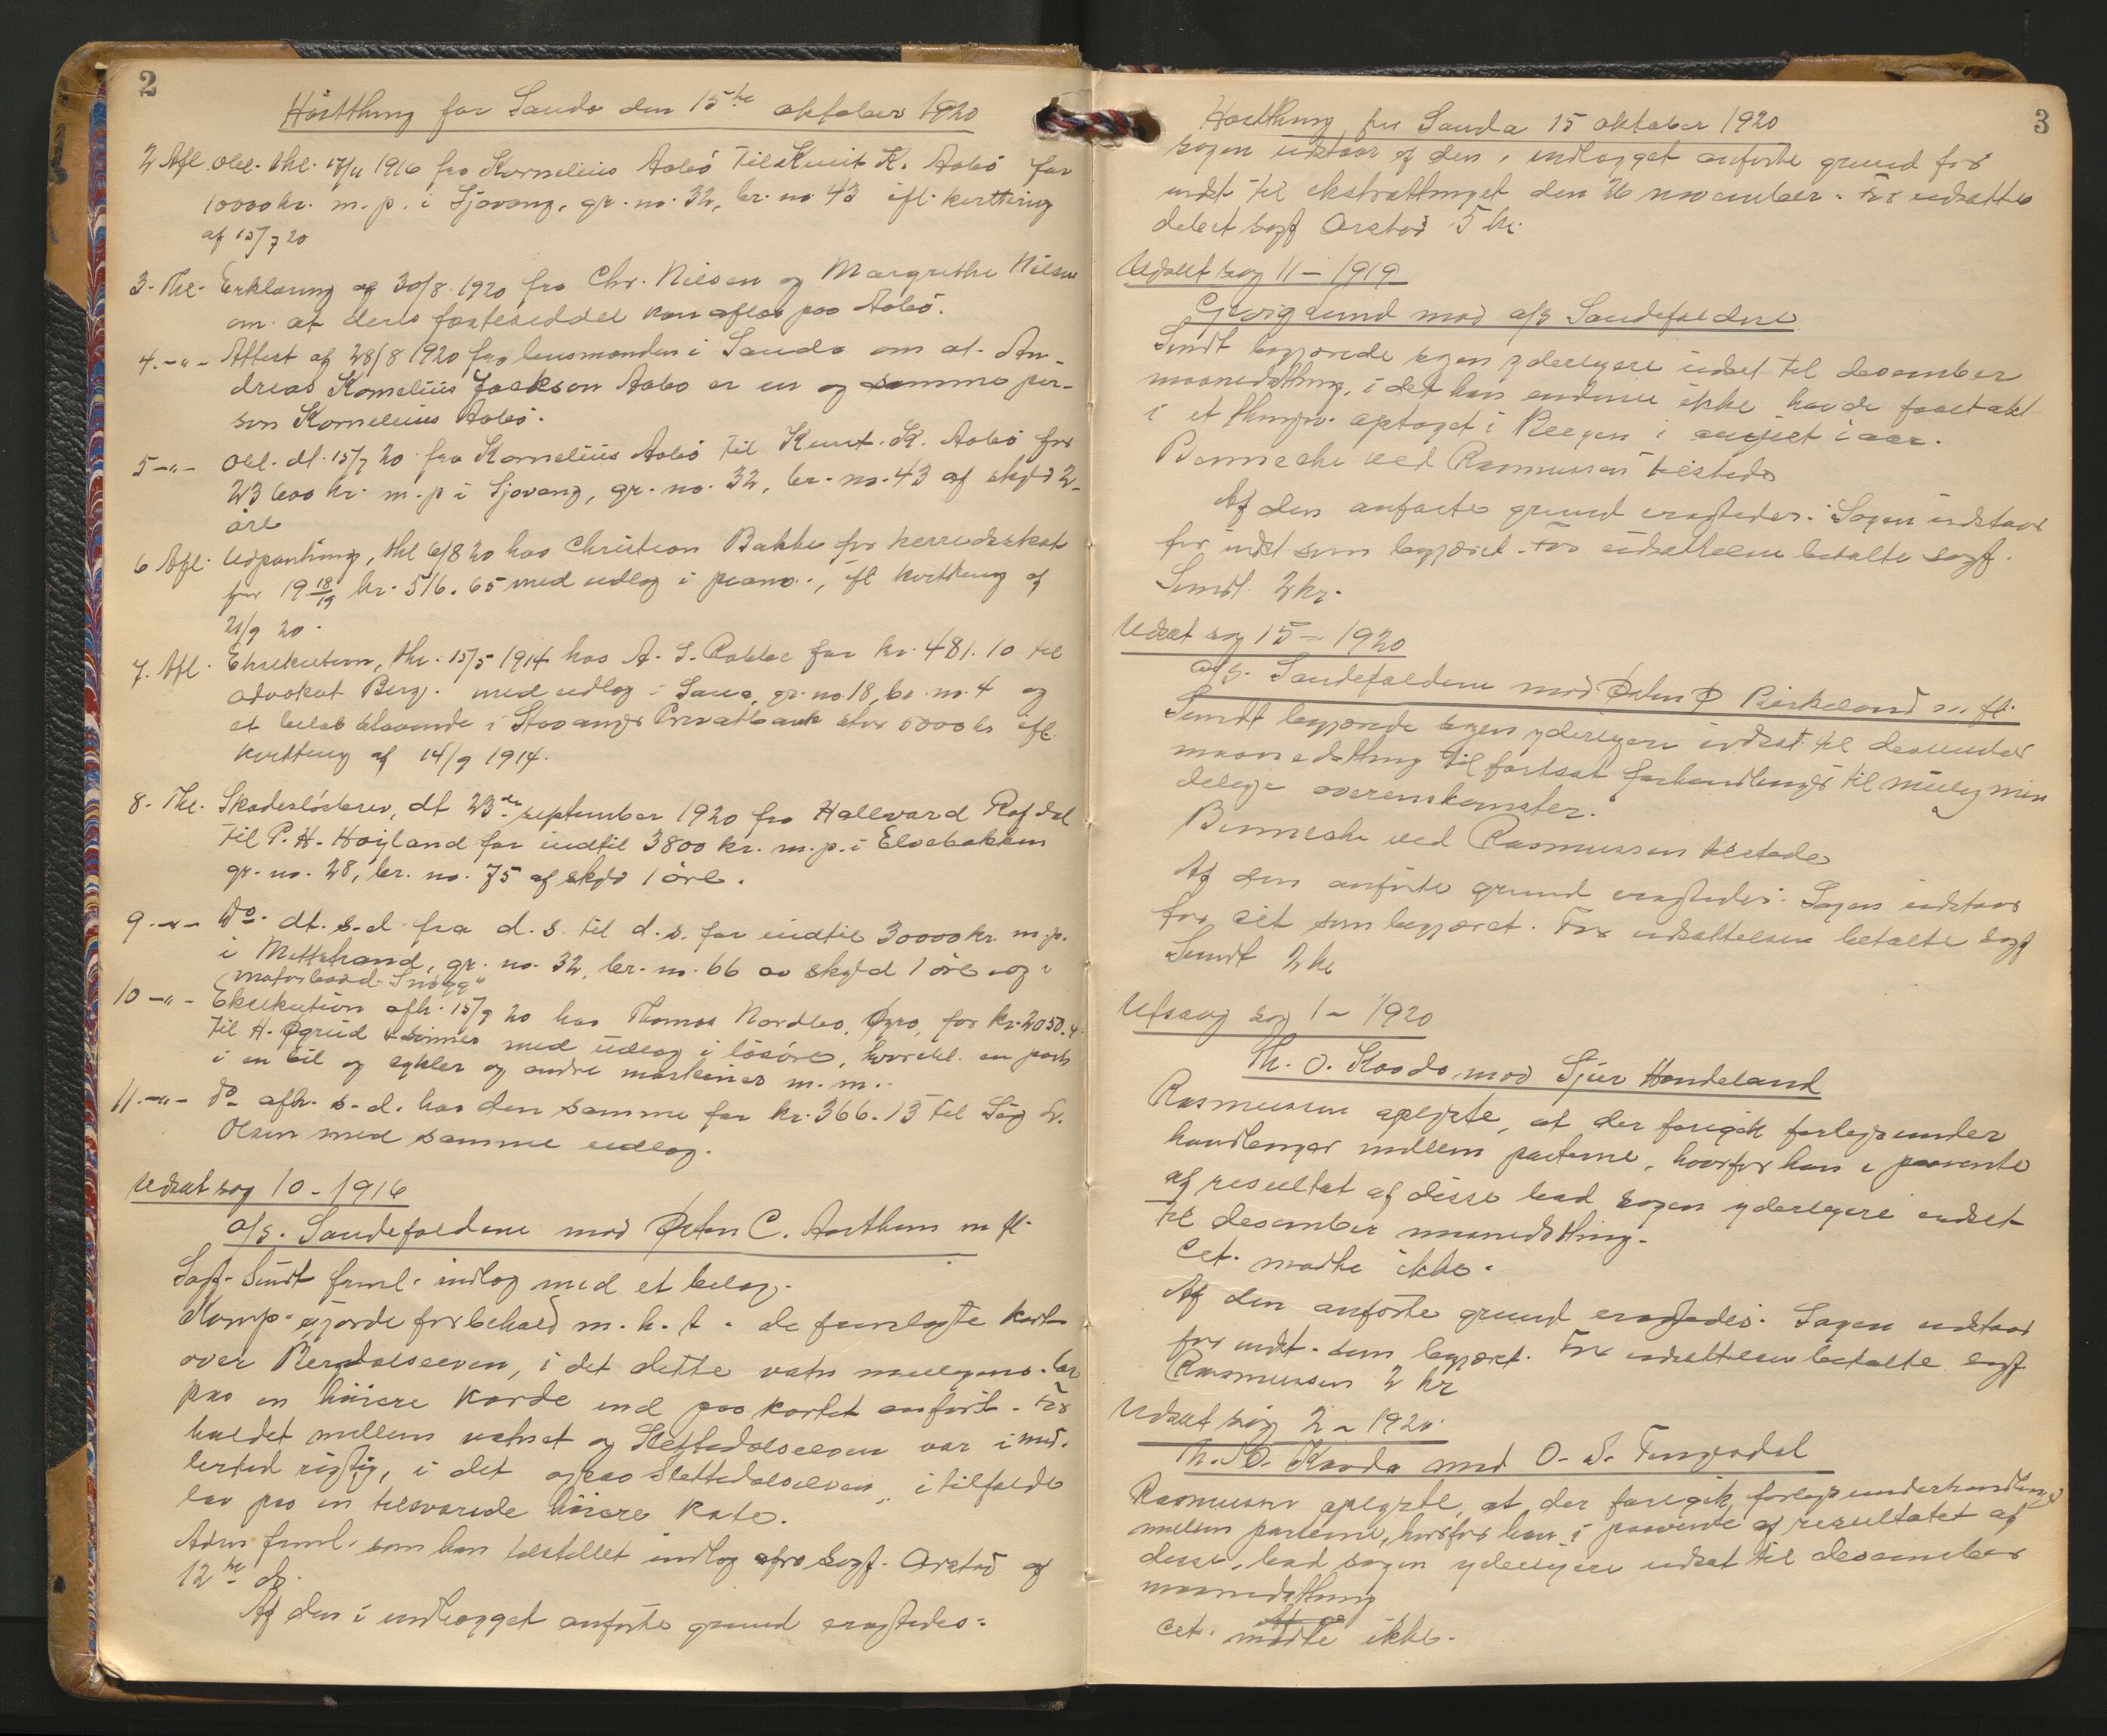 2
Hösttthing for Sauda den 15de oktober 1920
2 Afl. Obl. thl. 17/11 1916 fra Kornelius Aabö til Knut K. Aabö for
10000 kr. m. p. i Sjovang, gr. no. 32, br. no 43 ifl. kvittering
af 15/7 20
3. Thl. Erklæring af 30/8 1920 fra Chr. Nilsen og Margrethe Nilsen
om at deres festeseddel kan afløs paa Aabö.
4. -"- Attest af 28/8 1920 fra lensmanden i Sauda om at An-
dreas Kornelius Jackson Aabo er en og samme per-
son Kornelius Aabö.
5 -"- Obl. dt. 15/7 20 fra Kornelius Aabö til Knut K. Aabö for
23600 kr. m. p i Sjovang, gr. no. 32, br. no. 43 af skyld 2
öre
6 Afl. Udpantning, thl 6/8 20 hos Christian Bakke for herredsskat
for 19 18/19 kr. 516.65 med udlæg i piano., ifl kvittering af
21/9 20.
7. Afl. Eksekution, thl. 15/5 1914 hos A. S. Rabbe for kr. 481.10 til
advokat Berg. med udlæg i gr. no. 18, br. no. 4 og
et belöb staaende i Stavanger Privatbank stor 5000 kr ifl.
kvittering af 14/9 1914.
8. Thl. Skadeslösbrev, dt 23de september 1920 fra Hallvard Rafdal
til P. H. Höyland for indtil 3800 kr. m. p. i Elvebakken
gr. no. 28, br. no. 75 af skyld 1 öre.
9. -"- Do. dt. s. d. fra d. s. til d. s. for indtil 30000 kr. m. p.
i gr. no. 32, br. no. 66 av skyld 1 öre og i
motorbaad "Snögg"
10 -"- Eksekution afh. 15/9 20 hos Thomas Nordbo, Øyro, for kr. 2050.4
til H. Øgrid & sönner med udlæg i lösöre, hvoribl. en part
i en bil og sykler og andre maskiner m. m..
11. -"- Do afh. s. d. hos den samme for kr. 366.15 til Sig.
Olsen med samme udlæg.
Udsat sag 10 - 1916
a/s. Saudefaldene mod Østen C. Aarthun m fl.
Sagf. Sundt freml. indlæg med et bilag.
Komp. gjorde forbehold m. h. t. de fremlagte kart
over Berdalselven, i det dette vatn muligens lar
paa en höiere kote end paa kartet anfört. For
holdet mellem vatnet og Slettedalselven var imid.
lertid rigtig, i det ogsaa Slettedalselven i tilfælde
lar paa en tilsvarende höiere kote.
Adm freml. som ham tilstillet indlæg fra sagf. Orstad af
12te ds.
Af den i indlægget anförte grund eragtedes:
3
Höstthing for Sauda 15 oktober 1920
Sagen udstaar af den i indlægget anförte grund for
undt til ekstrathinget den 26 november. For udsættel
delsen sagf Orstad 5 kr.
Udsat sag 11 - 1919
Georg Lund mod a/s Saudefaldene
Sundt begjærede sagen yderligere udsat til desember
maanedsthing, i det han endnu ikke havde faaet akt
i et thingsv. optaget i Bergen i august i aar.
Benneche ved Rasmussen tilstede
Af den anförte grund eragtedes: Sagen udstaar
for undt som begjæret. For udsættelsen betalte sagf.
Sundt 2 kr.
Udsat sag 15 - 1920
a/s. Saudefaldene mod Østen Ø Birkeland m. fl.
Sundt begjærede sagen yderligere udsat til desember
maanedsthing til fortsat forhandlinger til mulig min
delige overenskomster.
Benneche ved Rasmussen tilstede
Af den anförte grund eragtedes: Sagen udstaar
for som begjæret. For udsættelsen betalte sagf
Sundt 2 kr
sag 1 - 1920
Th. O. Kaada mod Sjur Handeland
Rasmussen oplyste, at der foregik forligsunder
handlinger mellem parterne, hvorfor han i paavente
af resultat af disse bad sagen yderligere udsat
til desember maanedsthing.
Cit. mödte ikke.
Af den anförte grund eragtedes: Sagen udstaar
for undt. som begjæret. For udsættelsen betalte sagf
Rasmussen 2 kr
Udsat sag 2 - 1920.
Th. O. Kaada mod O. S.
Rasmussen oplyste, at der foregik forligsunderhandling
mellem parterne, hvorfor han i paavente af resultatet af
disse, bad sagen yderligere udsat til desember
maanedsthing
Cit. mödte ikke.